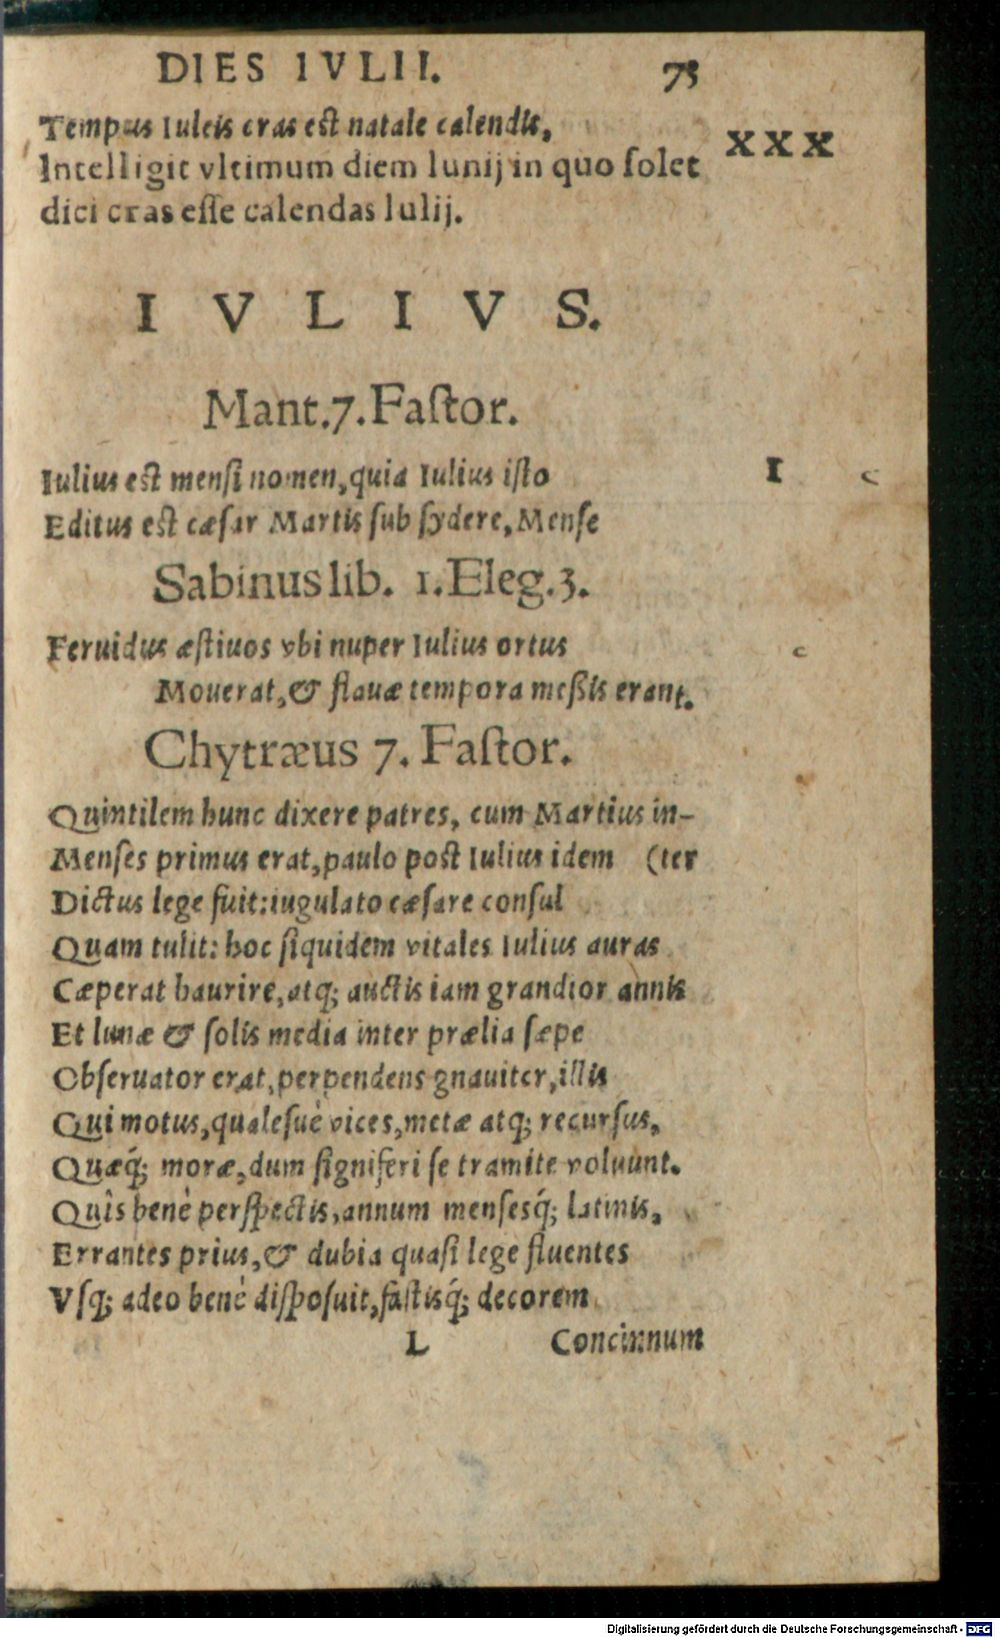 DIES IVLII. 75
Tempus Iuleis cras est natale calendis, XXX
Intelligit vltimum diem Iunij in quo solet
dici cras esse calendas Iulij.
IVLIVS.
Mant.7.Fastor.
Iulius est mensi nomen,quia Iulius isto I c
Editus est cæsar Martis sub sydere,Mense
Sabinus lib. 1.Eleg.3.
Feruidus æstiuos vbi nuper Iulius ortus c
Mouerat,& flauæ tempora meßis erant.
Chytræus 7. Fastor.
Quintilem hunc dixere patres, cum Martius in-
Menses primus erat,paulo post Iulius idem (ter
Dictus lege fuit:iugulato cæsare consul
Quam tulit: hoc siquidem vitales Iulius auras
Cæperat haurire,atq; auctis iam grandior annis
Et lunæ & solis media inter prælia sæpe
Obseruator erat,perpendens gnauiter,illis
Qui motus,qualesuè vices,metæ atq; recursus,
Quæq́; moræ,dum signiferi se tramite voluunt.
Quîs benè perspectis,annum mensesq́; latinis,
Errantes prius,& dubia quasi lege fluentes
Vsq; adeo benè disposuit,fastisq́; decorem
L Concinnum
Digitalisierung gefördert durch die Deutsche Forschungsgemeinschaft - DFG